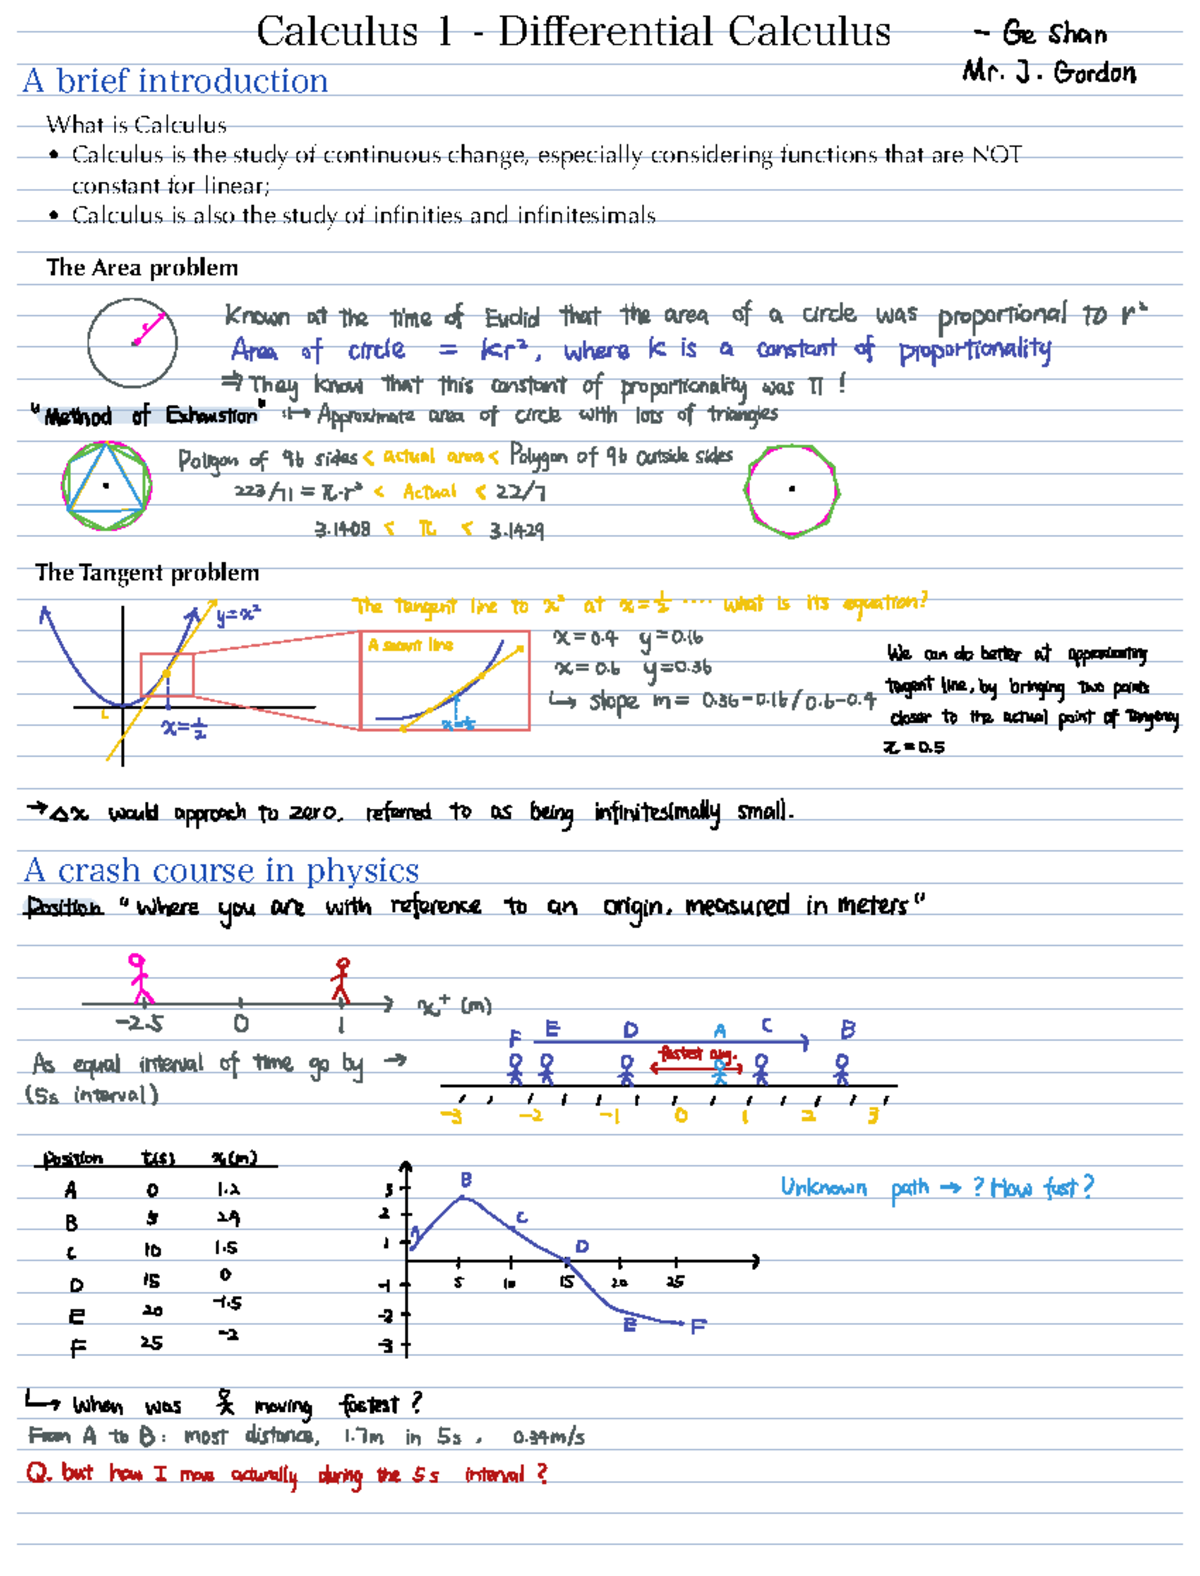 Calculus 1 - Differential Calculus
~ Ge Shan
Mr. J. Gordon
A brief introduction
What is Calculus
• Calculus is the study of continuous change, especially considering functions that are NOT
constant for linear;
• Calculus is also the study of infinities and infinitesimals
The Area problem
r
Known at the time of Euclid that the area of a circle was proportional to r²
Area of circle = kr², where k is a constant of proportionality
⇒ They know that this constant of proportionality was π !
"Method of Exhaustion" :↦ Approximate area of circle with lots of triangles
Poligon of 96 sides < actual area < Polygon of 96 outside sides
223/71 = π·r² < Actual < 22/7
3.1408 < π < 3.1429
The Tangent problem
y=x²
L
x=½
The tangent line to x² at x=½ .... what is its equation?
A secant line
x=½
x=0.4 y=0.16
x=0.6 y=0.36
↳ slope m= 0.36-0.16/0.6-0.4
We can do better at approximating
tangent line, by bringing two points
closer to the actual point of Tangency
x=0.5
→ Δx would approach to zero, referred to as being infinitesimally small.
A crash course in physics
Position "Where you are with reference to an origin, measured in meters"
-2.5 0 1 x⁺ (m)
As equal interval of time go by →
(5s interval)
F E D A C B
fastest avg.
-3 -2 -1 0 1 2 3
Position t(s) x(m)
A 0 1.2
B 5 2.9
C 10 1.5
D 15 0
E 20 -1.5
F 25 -2
3
2
1
-1
-2
-3
5 10 15 20 25
A B C D E F
Unknown path → ? How fast?
↳ When was moving fastest?
From A to B: most distance, 1.7m in 5s, 0.34m/s
Q. but how I move acturally during the 5s interval?